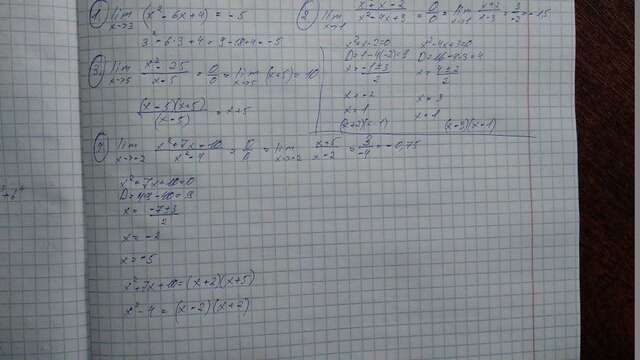 1) lim x→3 (x² - 6x + 4) = -5
3² - 6·3 + 4 = 9 - 18 + 4 = -5
2) lim x→1 x² + x - 2 / x² - 4x + 3 = 0/0 = lim x→1 x+2 / x-3 = 3/-2 = -1,5
x² + x - 2 = 0
D = 1 - 4(-2) = 9
x = -1±3 / 2
x = -2
x = 1
(x+2)(x-1)
x² - 4x + 3 = 0
D = 16 - 4·3 = 4
x = 4±2 / 2
x = 3
x = 1
(x-3)(x-1)
3) lim x→5 x² - 25 / x - 5 = 0/0 = lim x→5 (x+5) = 10
(x-5)(x+5) / (x-5) = x+5
4) lim x→-2 x² + 7x + 10 / x² - 4 = 0/0 = lim x→-2 x+5 / x-2 = 3/-4 = -0,75
x² + 7x + 10 = 0
D = 49 - 40 = 9
x = -7±3 / 2
x = -2
x = -5
x² + 7x + 10 = (x+2)(x+5)
x² - 4 = (x-2)(x+2)